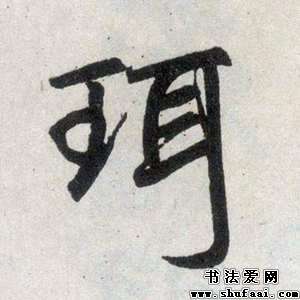 珥
书法爱网
www.shufaai.com